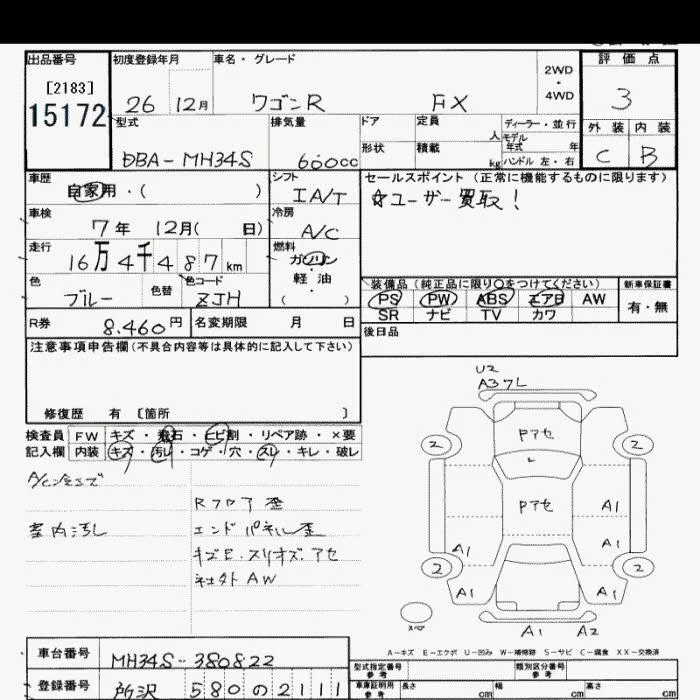 出品番号 初度登録年月 車名・グレード 2WD・4WD 評価点
[2183] 15172 26 12月 ワゴンR FX 3
型式 排気量 ドア 定員 人 ディーラー・並行 外装 内装
DBA-MH34S 660cc 形状 積載 kg モデル年式 年 ハンドル 左・右 C B
車歴 自家用・( ) シフト IA/T セールスポイント(正常に機能するものに限ります)
☆ユーザー買取!
車検 7年 12月( 日) 冷房 A/C
走行 16万4千487km 燃料 ガソリン
軽油
( )
色 ブルー 色替 色コード ZJH
装備品(純正品に限り○をつけてください) 新車保証書
PS PW ABS エアB AW 有・無
SR ナビ TV カワ
R券 8.460円 名変期限 月 日 後日品
注意事項申告欄(不具合内容等は具体的に記入して下さい)
修復歴 有 [箇所 ]
検査員 FW キズ・飛石・ヒビ割・リペア跡・×要
記入欄 内装 キズ・汚レ・コゲ・穴・スレ・キレ・破レ
室内汚レ
Rフロア歪
エンドパネル歪
キズE.スリキズ.アセ
社外AW
U2
A3ワレ
Pアセ
2 2
Pアセ
A1
A1 A1
2 2
A1 A1
スペア
A1 A2
A-キズ E-エクボ U-凹み W-補修跡 S-サビ C-腐食 XX-交換済
車台番号 MH34S-380822
登録番号 所沢 580 の 2111
型式指定番号 参考 類別区分番号 参考
車庫証明用 参考 長さ cm 幅 cm 高さ cm